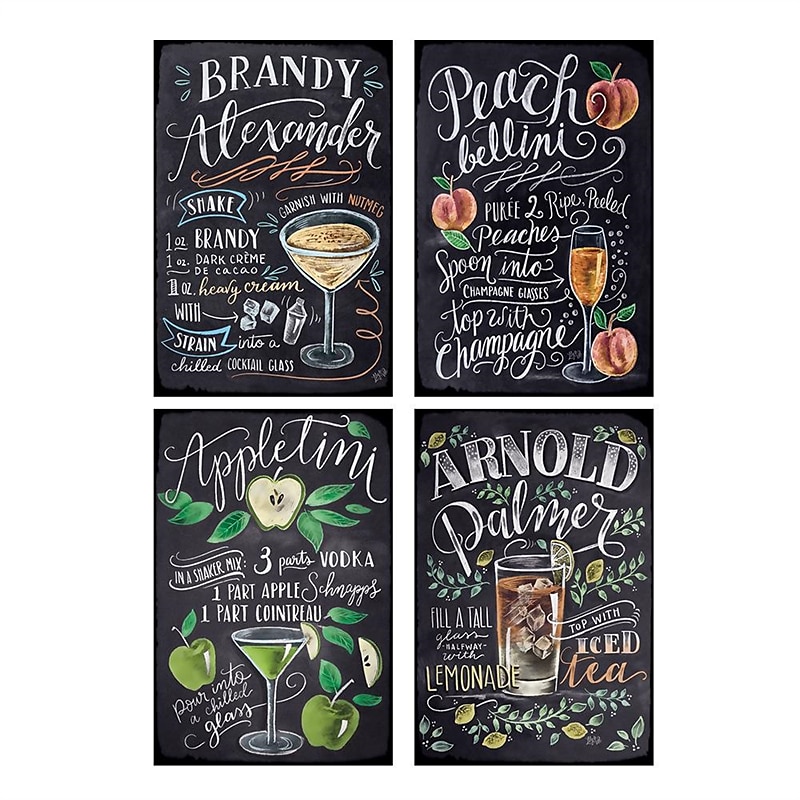 BRANDY
Alexander
SHAKE
GARNISH WITH NUTMEG
1 oz. BRANDY
1 oz. DARK CRÈME
DE CACAO
1 oz. heavy cream
WITH
STRAIN into a
chilled COCKTAIL GLASS
Peach
bellini
PURÉE 2 Ripe, Peeled
Peaches
Spoon into
CHAMPAGNE GLASSES
top with
Champagne
Appletini
IN A SHAKER MIX: 3 parts VODKA
1 PART APPLE Schnapps
1 PART COINTREAU
pour into
a chilled
glass
ARNOLD
Palmer
FILL A TALL
glass
-HALFWAY-
with
LEMONADE
TOP WITH
ICED
tea